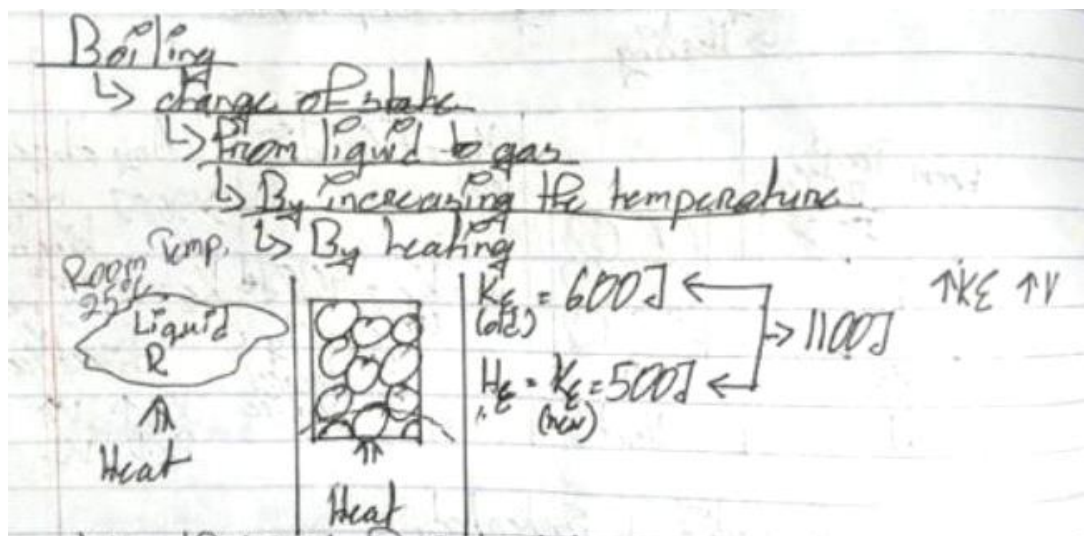 Boiling
↳ change of state
↳ From liquid to gas
↳ By increasing the temperature
↳ By heating
Room Temp.
25°C
Liquid
R
Heat
Heat
KE = 600J
(old)
HE = KE = 500J
(new)
→ 1100J
↑KE ↑V